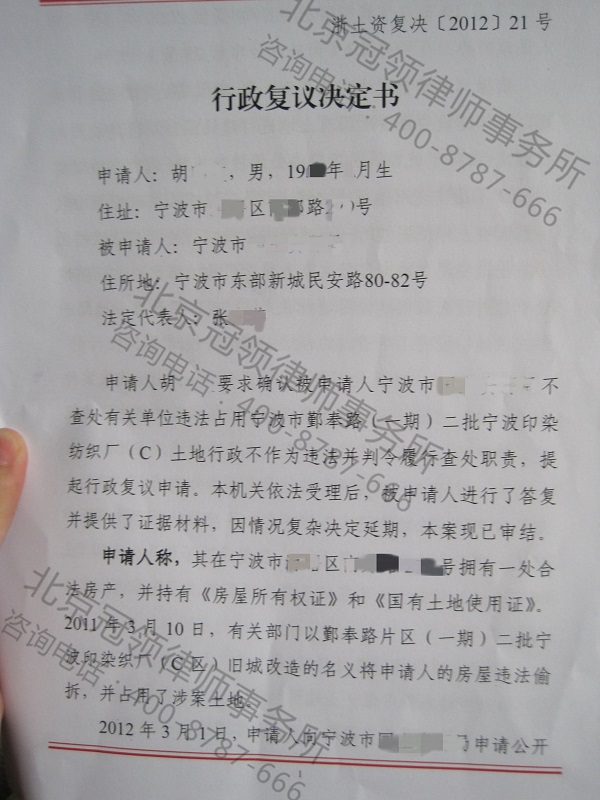 浙土资复决〔2012〕21号
行政复议决定书
申请人：胡 ，男，19 年 月生
住址：宁波市 区 路 号
被申请人：宁波市
住所地：宁波市东部新城民安路80-82号
法定代表人：张
申请人胡 要求确认被申请人宁波市 不
查处有关单位违法占用宁波市鄞奉路（一期）二批宁波印染
纺织厂（C）土地行政不作为违法并判令履行查处职责，提
起行政复议申请。本机关依法受理后，被申请人进行了答复
并提供了证据材料，因情况复杂决定延期，本案现已审结。
申请人称，其在宁波市 区 号拥有一处合
法房产，并持有《房屋所有权证》和《国有土地使用证》。
2011年3月10日，有关部门以鄞奉路片区（一期）二批宁
波印染织厂（C区）旧城改造的名义将申请人的房屋违法偷
拆，并占用了涉案土地。
2012年3月1日，申请人向宁波市 申请公开
北京冠领律师事务所
咨询电话：400-8787-666
北京冠领律师事务所
咨询电话：400-8787-666
北京冠领律师事务所
咨询电话：400-8787-666